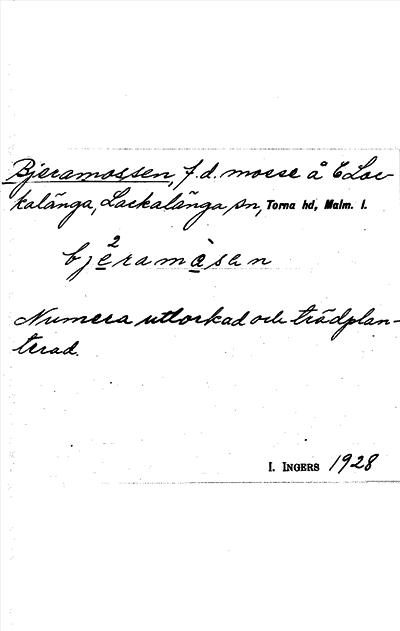 Bjeramossen, f.d. mosse å Lac-
kalänga, Lackalänga sn, Torna hd, Malm. l.
bjè²ramåsen
Numera uttorkad och trädplan-
terad.
I. INGERS 1928